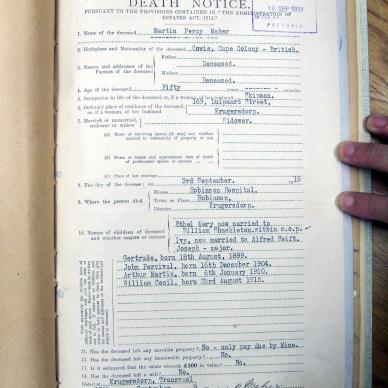 DEATH NOTICE.
PURSUANT TO THE PROVISIONS CONTAINED IN "THE ADMINISTRATION OF
ESTATES ACT, 1913."
18 SEP 1933
PRETORIA
1. Name of the deceased Martin Percy Maher
2. Birthplace and Nationality of the deceased Cowie, Cape Colony - British.
3. Names and addresses of the Parents of the deceased
Father Deceased.
Mother Deceased.
4. Age of the deceased Fifty years months
5. Occupation in life of the deceased, or, if a woman, of her husband Skipman.
6. Ordinary place of residence of the deceased, or, if a woman, of her husband 169, Luipaard Street, Krugersdorp.
7. Married or unmarried, widower or widow Widower.
(a) Name of surviving spouse (if any) and whether married in community of property or not
(b) Name or names and approximate date of death of predeceased spouse or spouses
(c) Place of last marriage
8. The day of the decease 3rd September. 19
9. Where the person died
House Robinson Hospital,
Town or Place Robinson,
District Krugersdorp.
10. Names of children of deceased and whether majors or minors
Ethel Mary now married to
William Shackleton, within c.o.p.
Ivy, now married to Alfred Swift.
Joseph - major.
Gertrude, born 18th August, 1899.
John Percival, born 16th December 1904.
Arthur Martin, born 6th January 1910.
William Cecil, born 23rd August 1915.
11. Has the deceased left any movable property? No - only pay due by Mine.
12. Has the deceased left any immovable property? No.
13. Is it estimated that the estate exceeds £300 in value? No.
14. Has the deceased left a will? No.
Dated at Krugersdorp, Transvaal